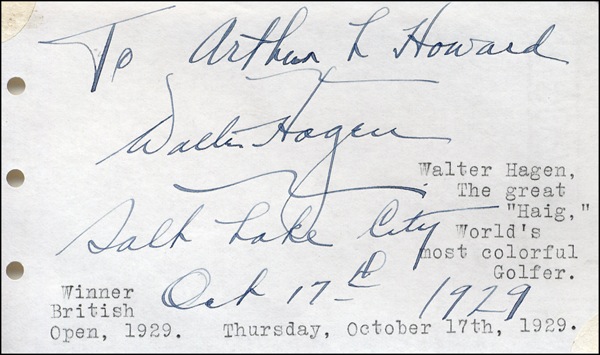 To Arthur L Howard
Walter Hagen
Salt Lake City
Oct 17th 1929
Walter Hagen,
The great
"Haig,"
World's
most colorful
Golfer.
Winner
British
Open, 1929.
Thursday, October 17th, 1929.